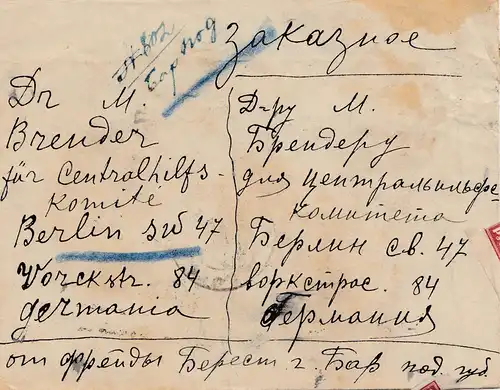 заказное
Dr M.
Brender
für Centralhilfs-
Komité
Berlin SW 47
Yorckstr. 84
germania
Д-ру М.
Брендеру
для Центральгильфе
комитета
Берлин св. 47
воркстрас. 84
Германия
от Фрейды Берест г. Бар под. губ.